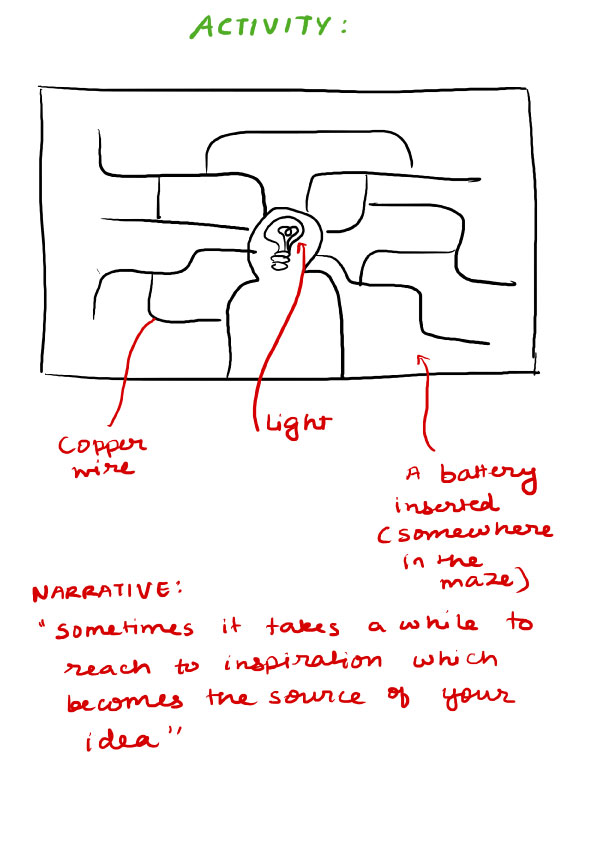 ACTIVITY:
Copper
wire
Light
A battery
inserted
(somewhere
in the
maze)
NARRATIVE:
"sometimes it takes a while to
reach to inspiration which
becomes the source of your
idea"